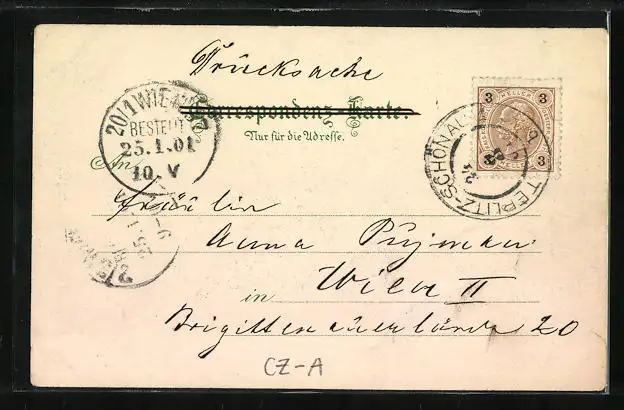 Drucksache
Correspondenz-Karte.
Nur für die Adresse.
20/1 WIEN
BESTELLT
25.1.01
10.V
3 HELLER 3
3 3
TEPLITZ-SCHÖNAU
An
Fräulein
Anna Pujman
in Wien II
Brigittenauerlände 20
CZ-A